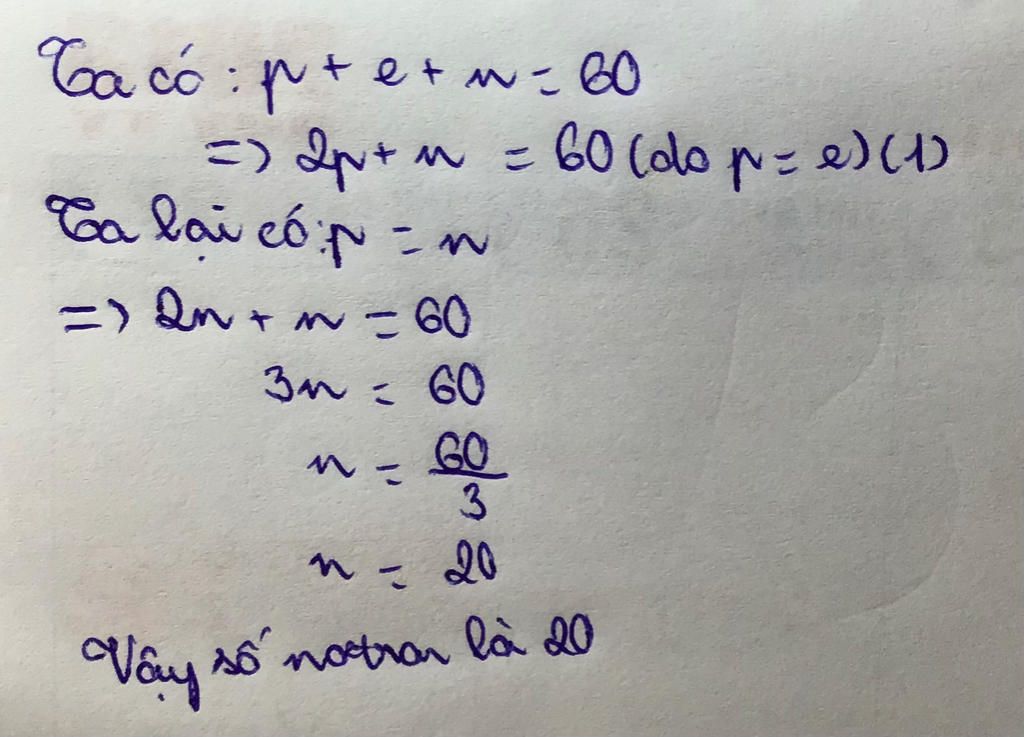 Ta có: p + e + n = 60
=> 2p + n = 60 (do p = e) (1)
Ta lại có: p = n
=> 2n + n = 60
3n = 60
n = 60/3
n = 20
Vậy số nơtron là 20